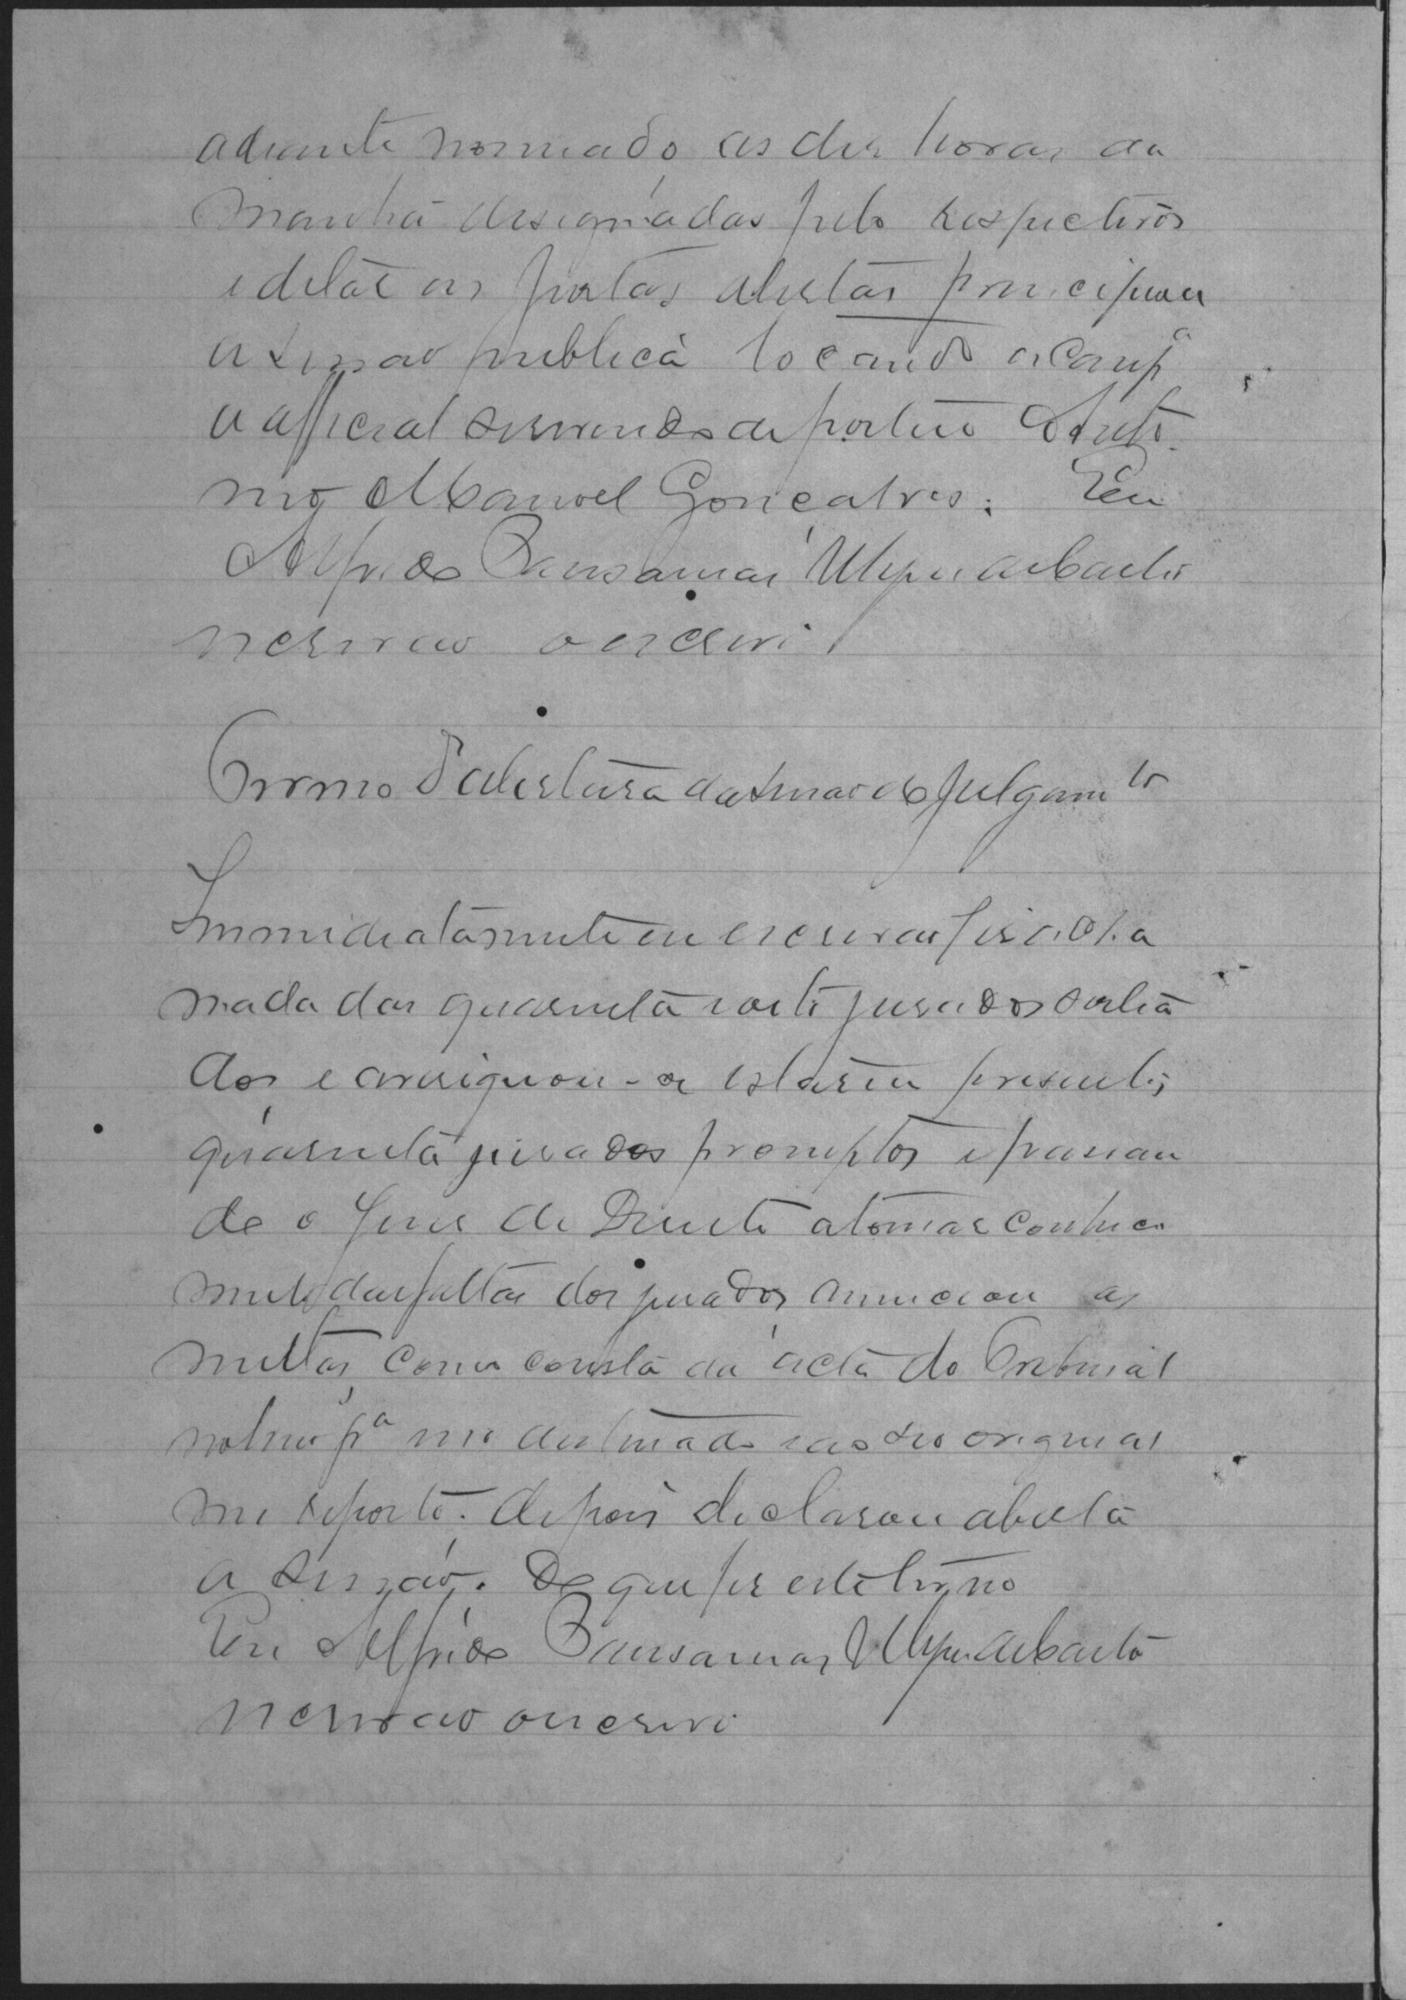 adiante nomeado, as dez horas da
manhã designadas pelo respectivos
edital as portas abertas principiou
a sessão publica tocando a camp.ª
o official servindo de porteiro Anto
nio Manoel Gonçalves. Eu
Alfredo
escrivão o escrevi
Termo d'abertura da sessão do julgam.to
Immediatamente eu escrivão fiz a cha
mada dos quarenta e oito jurados sortea
dos e averiguou-se estarem presentes
quarenta jurados promptos e passan
do o Juiz de Direito a tomar conheci
mento das faltas dos jurados, annunciou as
multas, como consta da acta do Tribunal
no livro p.ª isso destinado e ao seo original
me reporto. depois declarou aberta
a sessão. Do que fiz este termo
Eu Alfredo
escrivão o escrevi